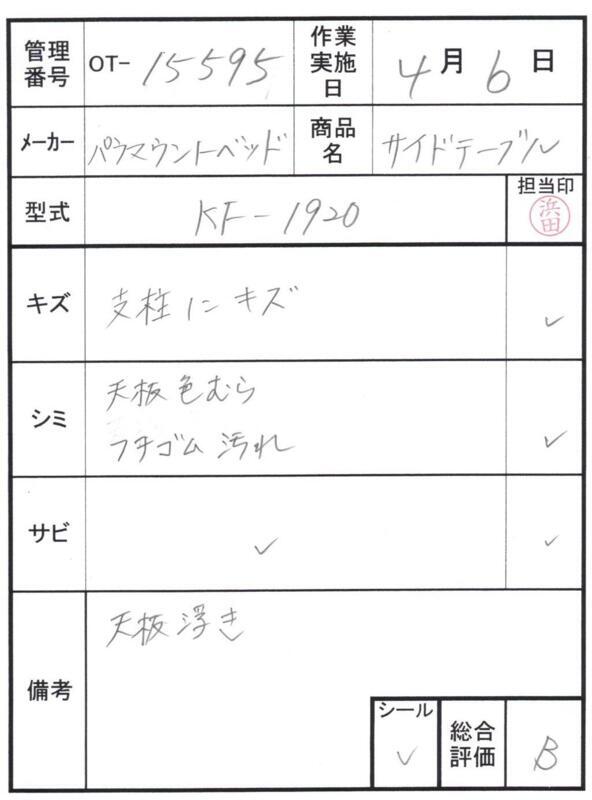 管理番号 OT- 15595 作業実施日 4月6日
メーカー パラマウントベッド 商品名 サイドテーブル
型式 KF-1920 担当印 浜田
キズ 支柱にキズ ✓
シミ 天板色むら
フチゴム汚れ ✓
サビ ✓ ✓
備考 天板浮き
シール ✓ 総合評価 B